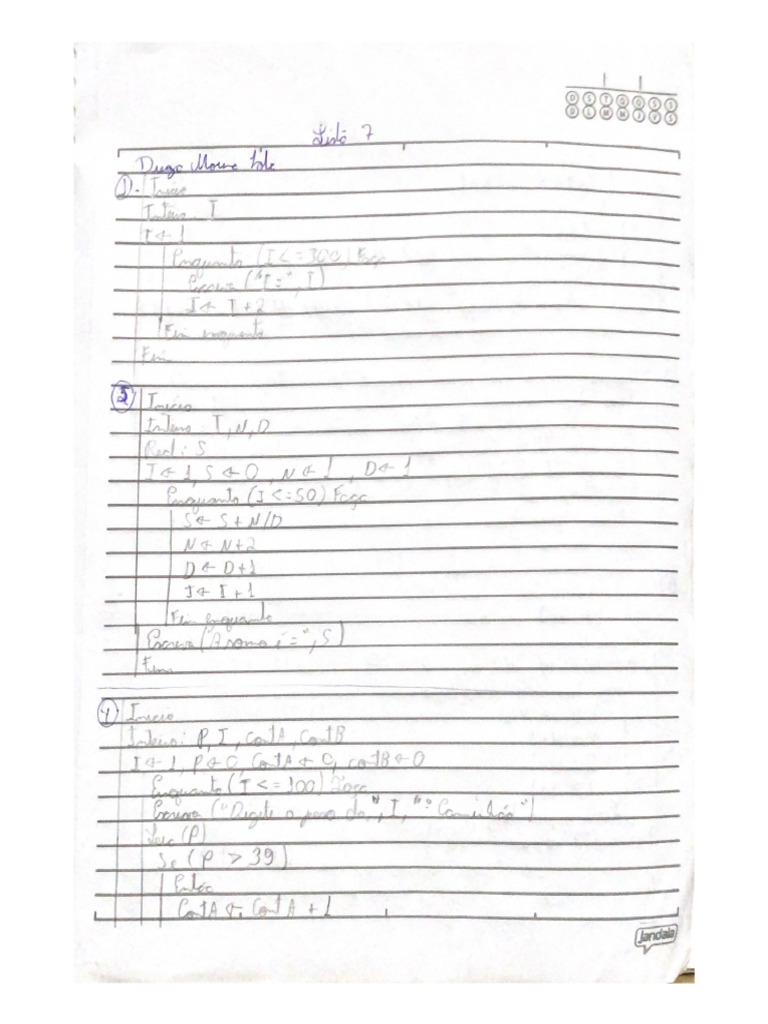 D S T Q Q S S
D L M M J V S
Lista 7
1. Início
Inteiro: I
I ← 1
Enquanto (I <= 300) Faça
Escreva ("I =", I)
I ← I + 2
Fim enquanto
Fim
Início
Inteiro: I, N, D
Real: S
I ← 1, S ← 0, N ← 1, D ← 1
Enquanto (I <= 50) Faça
S ← S + N/D
N ← N + 2
D ← D + 1
I ← I + 1
Fim enquanto
Escreva ("A soma é =", S)
Fim
Início
Inteiro: P, I, contA, contB
I ← 1, P ← 0, contA ← 0, contB ← 0
Enquanto (I <= 100) Faça
Escreva ("Digite o peso do", I, "º
Leia (P)
Se (P > 39)
Então
ContA ← ContA + 1
Jandaia